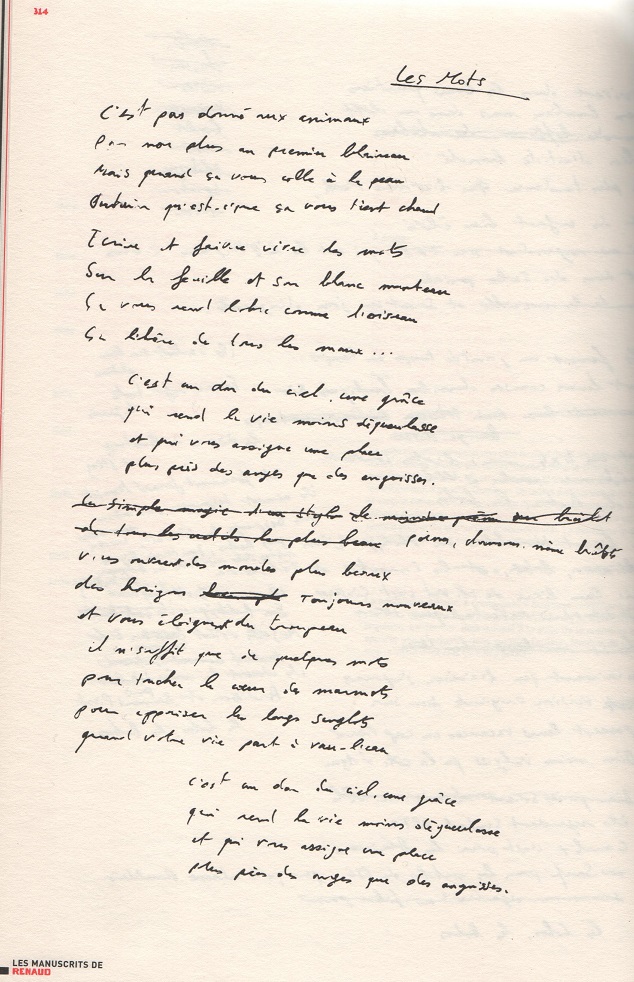 314
Les Mots
C'est pas donné aux animaux
Pas non plus au premier blaireau
Mais quand ça vous colle à la peau
Putain qu'est-c'que ça vous tient chaud
Ecrire et faire vivre les mots
Sur la feuille et son blanc manteau
Ça vous rend libre comme l'oiseau
Ça libère de tous les maux...
C'est un don du ciel, une grâce
qui rend la vie moins dégueulasse
et qui vous assigne une place
plus près des anges que des angoisses.
La simple magie d'un stylo de
de tous les plus beau poèmes, chansons, même bientôt
vous ouvrent des mondes plus beaux
des horizons toujours nouveaux
et vous éloignent du troupeau
il n'suffit que de quelques mots
pour toucher le cœur des marmots
pour apaiser les longs sanglots
quand votre vie part à vau-l'eau
c'est un don du ciel, une grâce
qui rend la vie moins dégueulasse
et qui vous assigne une place
plus près des anges que des angoisses.
LES MANUSCRITS DE
RENAUD